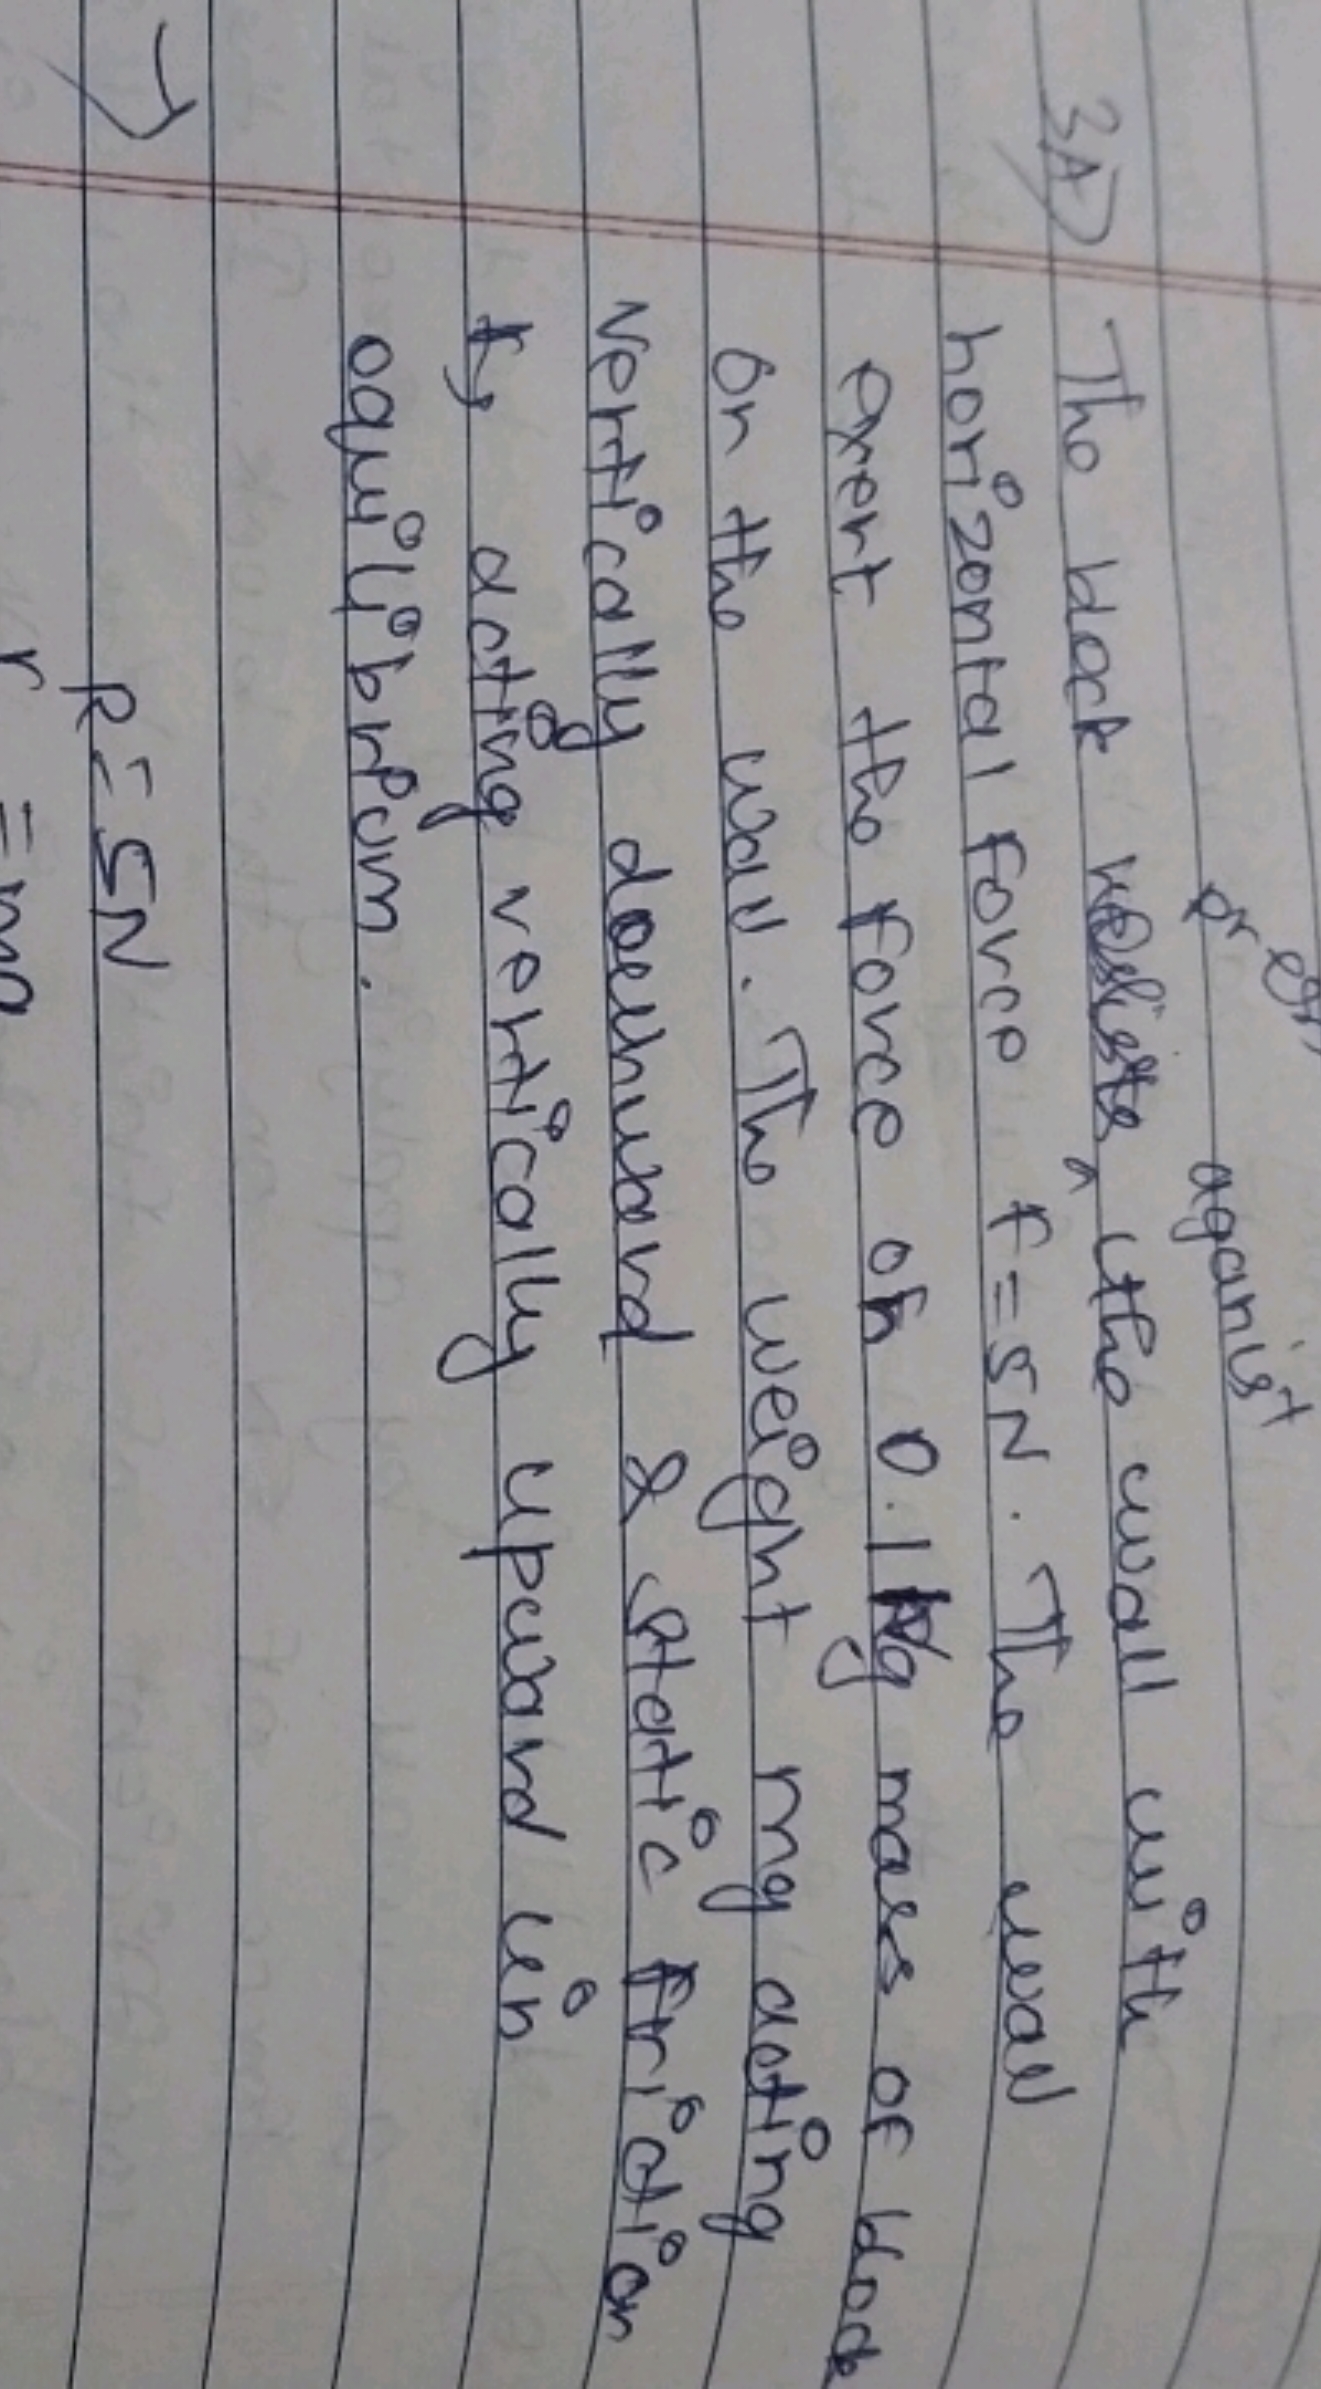 or ex
aganist
3A) The block resists the wall with
horizontal force F = 5N. The wall
exert the force on 0.1 Kg mass of block
on the wall. The weight mg acting
vertically downward & static friction
Fs acting vertically upward in
equilibrium.
→ R = 5N
r = mg